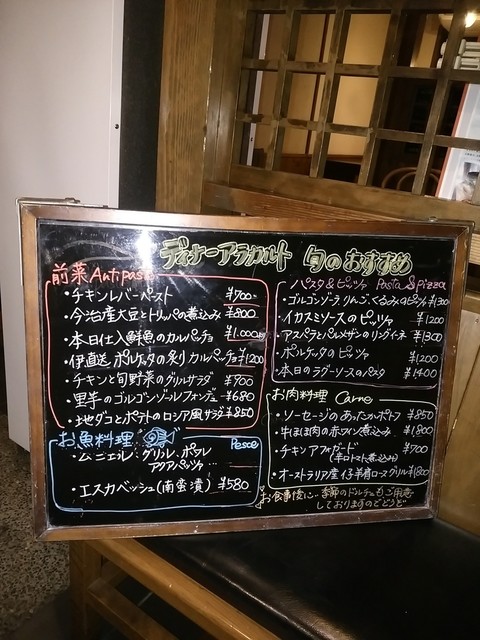 ディナーアラカルト 旬のおすすめ
前菜 Antipasto
・チキンレバーペースト ¥700-
・今治産大豆とトリッパの煮込み ¥800
・本日仕入鮮魚のカルパッチョ ¥1,000
・伊直送 ポルケッタの炙りカルパッチョ ¥1200
・チキンと旬野菜のグリルサラダ ¥700
・里芋のゴルゴンゾーラフォンデュ ¥680
・地ダコとポテトのロシア風サラダ ¥850
お魚料理 Pesce
・ムニエル、グリル、ポワレ
アクアパッツァ...
・エスカベッシュ(南蛮漬) ¥580
パスタ&ピッツァ Pasta & Pizza
・ゴルゴンゾーラりんご、くるみのピッツァ ¥1300
・イカスミソースのピッツァ ¥1200
・アスパラとパルメザンのリングイネ ¥1300
・ポルケッタのピッツァ ¥1200
・本日のラグーソースのパスタ ¥1,400
お肉料理 Carne
・ソーセージのあったかポトフ ¥850
・牛ほほ肉の赤ワイン煮込み ¥1,800
・チキンアフォガード ¥700
(辛口トマト煮込み)
・オーストラリア産 仔羊肩ロースグリル ¥1800
お食事後に…季節のドルチェもご用意
しておりますのでどうぞ